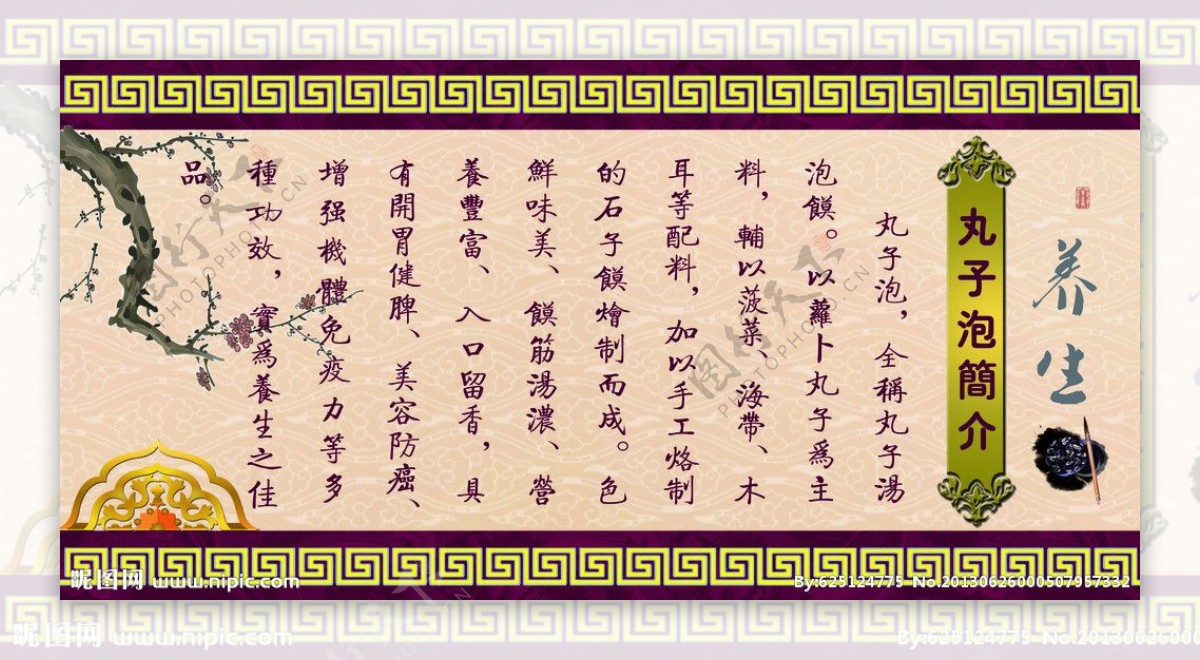 养生
丸子泡簡介
丸子泡，全稱丸子湯
泡饃。以蘿卜丸子爲主
料，輔以菠菜、海帶、木
耳等配料，加以手工烙制
的石子饃燴制而成。色
鮮味美、饃筋湯濃、營
養豐富、入口留香，具
有開胃健脾、美容防癌、
增强機體免疫力等多
種功效，實爲養生之佳
品。
昵图网 www.nipic.com
By:625124775 No.20130626000507957332
昵图网 www.nipic.com
By:625124775 No.20130626000